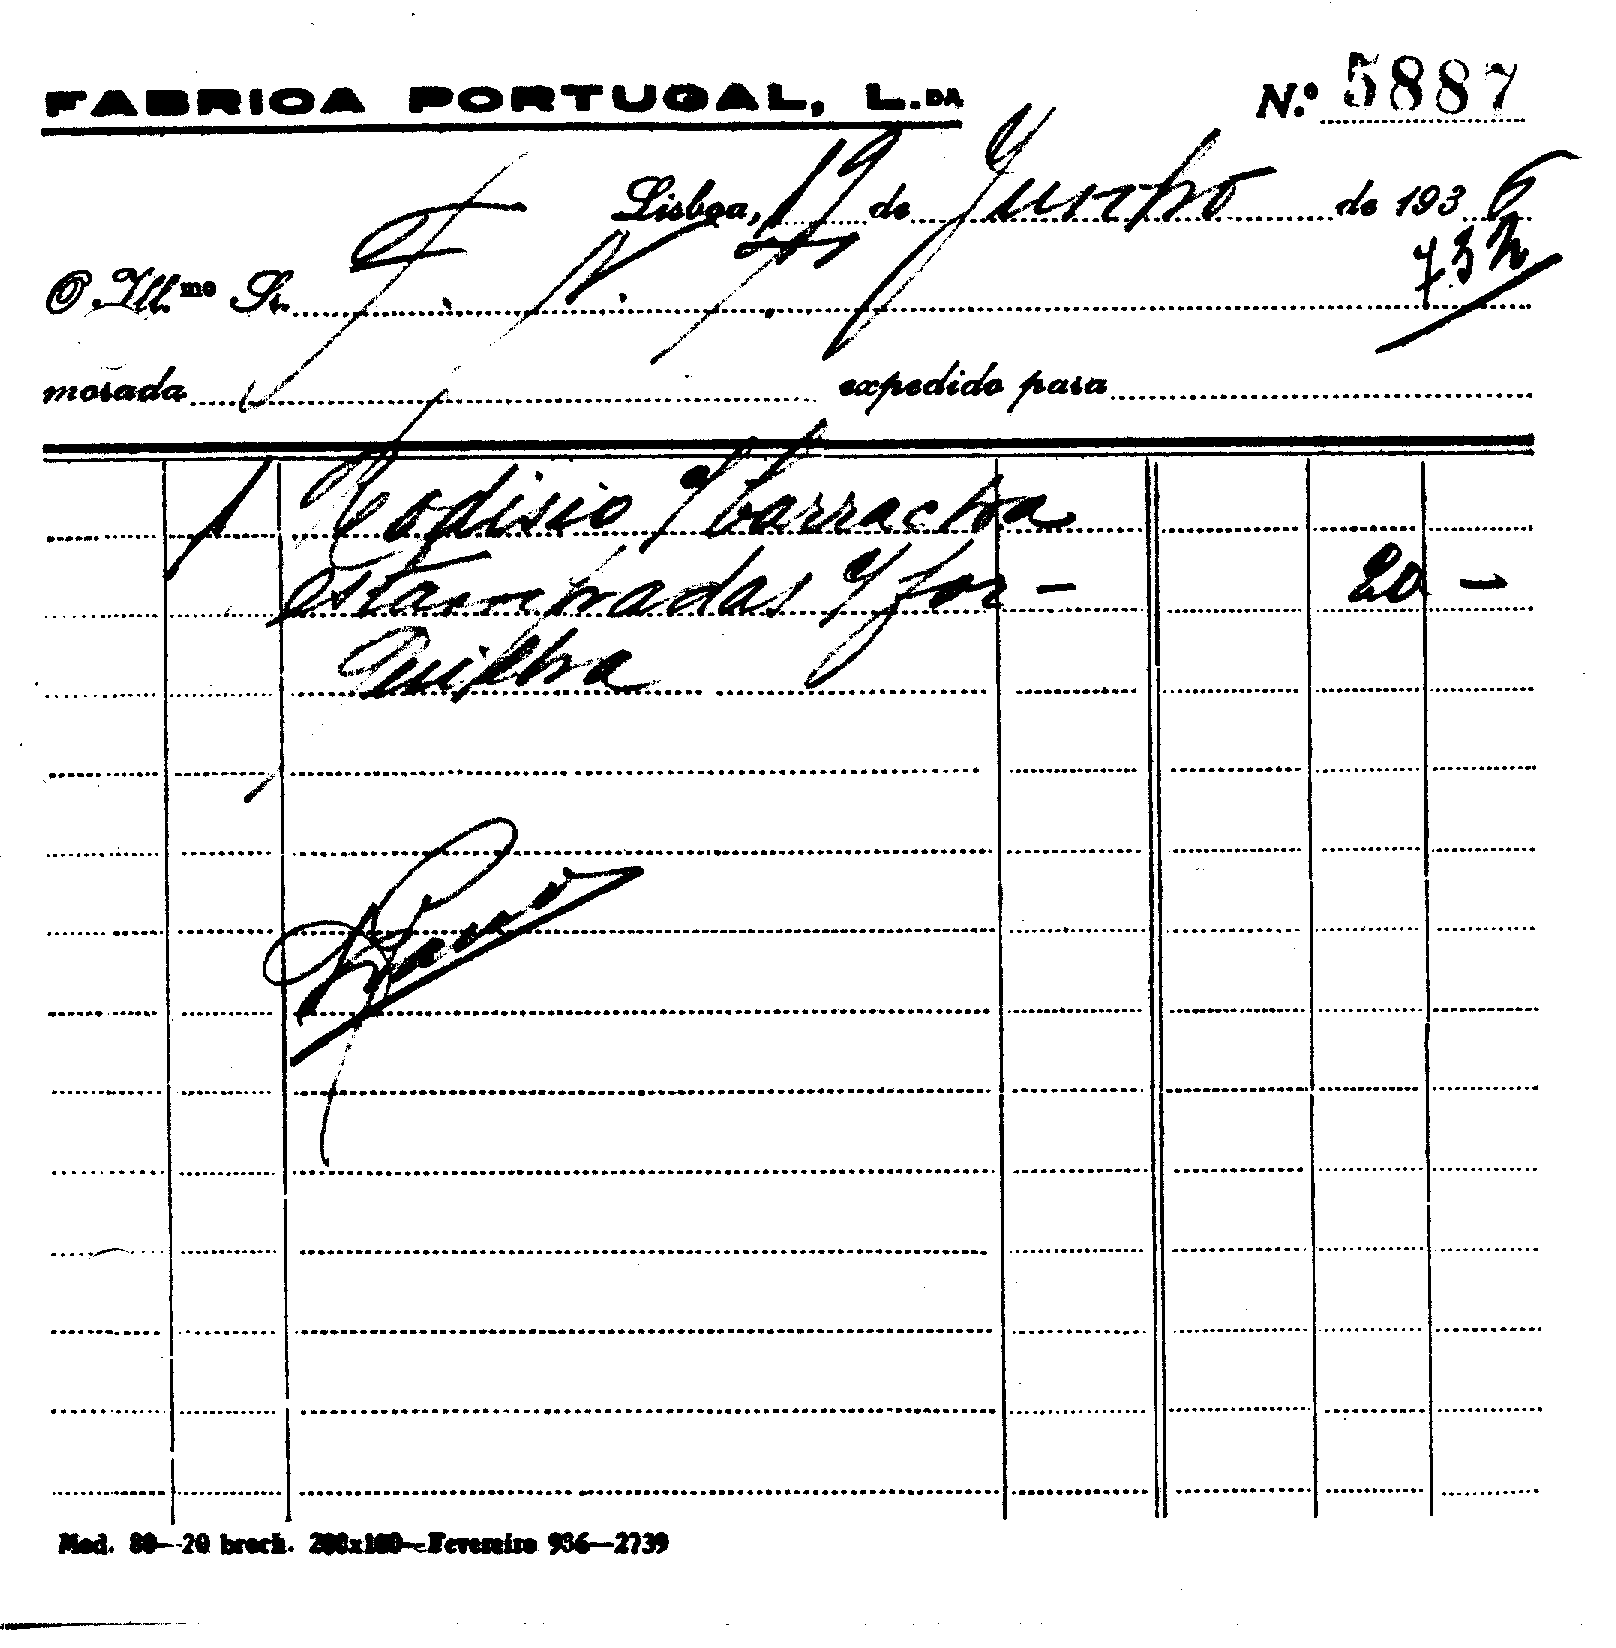 FABRICA PORTUGAL, L.DA
N.º 5887
Lisboa, 19 de Junho de 1936
O Ill.mo Sr. F. N. T. 732
morada expedido para
1 Rodisio c/ borracha
estampadas c/ for - 20 -
quilha
Mod. 80—20 broch. 200x100—Fevereiro 936—2739